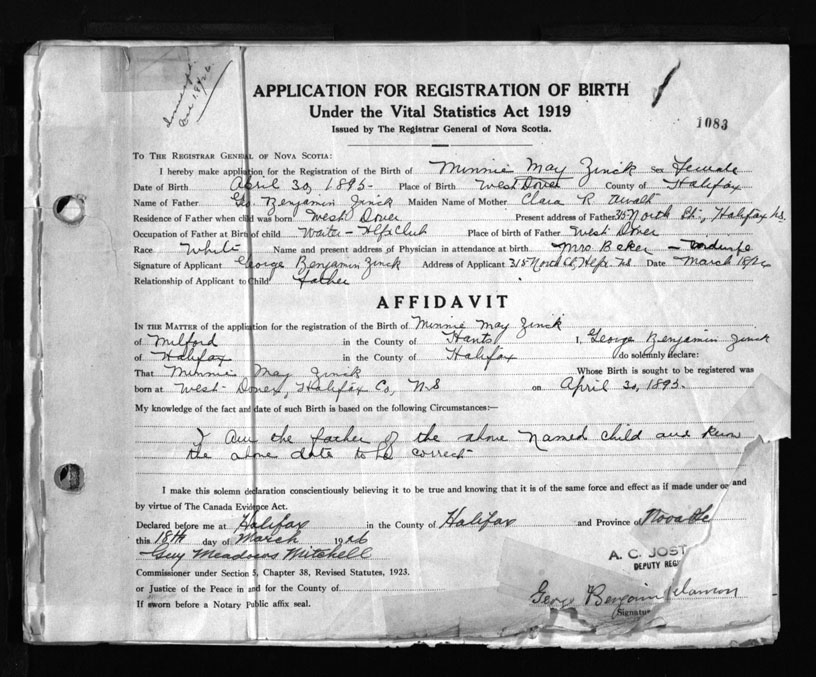 APPLICATION FOR REGISTRATION OF BIRTH
Under the Vital Statistics Act 1919
Issued by The Registrar General of Nova Scotia.
1083
TO THE REGISTRAR GENERAL OF NOVA SCOTIA:
I hereby make application for the Registration of the Birth of Minnie May Zinck Sex Female
Date of Birth April 30, 1895- Place of Birth West Dover County of Halifax
Name of Father Geo. Benjamin Zinck Maiden Name of Mother Clara R
Residence of Father when child was born West Dover Present address of Father 315 North St., Halifax N.S.
Occupation of Father at Birth of child Waiter - Hfx Club Place of birth of Father West Dover
Race White Name and present address of Physician in attendance at birth Mrs Baker - midwife
Signature of Applicant George Benjamin Zinck Address of Applicant 315 North St, Hlfx. N.S Date March 18/26
Relationship of Applicant to Child Father
AFFIDAVIT
IN THE MATTER of the application for the registration of the Birth of Minnie May Zinck
of Milford in the County of Hants I, George Benjamin Zinck
of Halifax in the County of Halifax do solemnly declare:
That Minnie May Zinck Whose Birth is sought to be registered was
born at West Dover, Halifax Co, N.S on April 30, 1895.
My knowledge of the fact and date of such Birth is based on the following Circumstances:—
I am the father of the above named child and know
the above date to be correct-
I make this solemn declaration conscientiously believing it to be true and knowing that it is of the same force and effect as if made under or and
by virtue of The Canada Evidence Act.
Declared before me at Halifax in the County of Halifax and Province of Nova Sc
this 18th day of March 1926
Guy Meadows Mitchell
A. C. JOST
DEPUTY REGI
Commissioner under Section 5, Chapter 38, Revised Statutes, 1923.
or Justice of the Peace in and for the County of
George Benjamin
If sworn before a Notary Public affix seal.
Signature